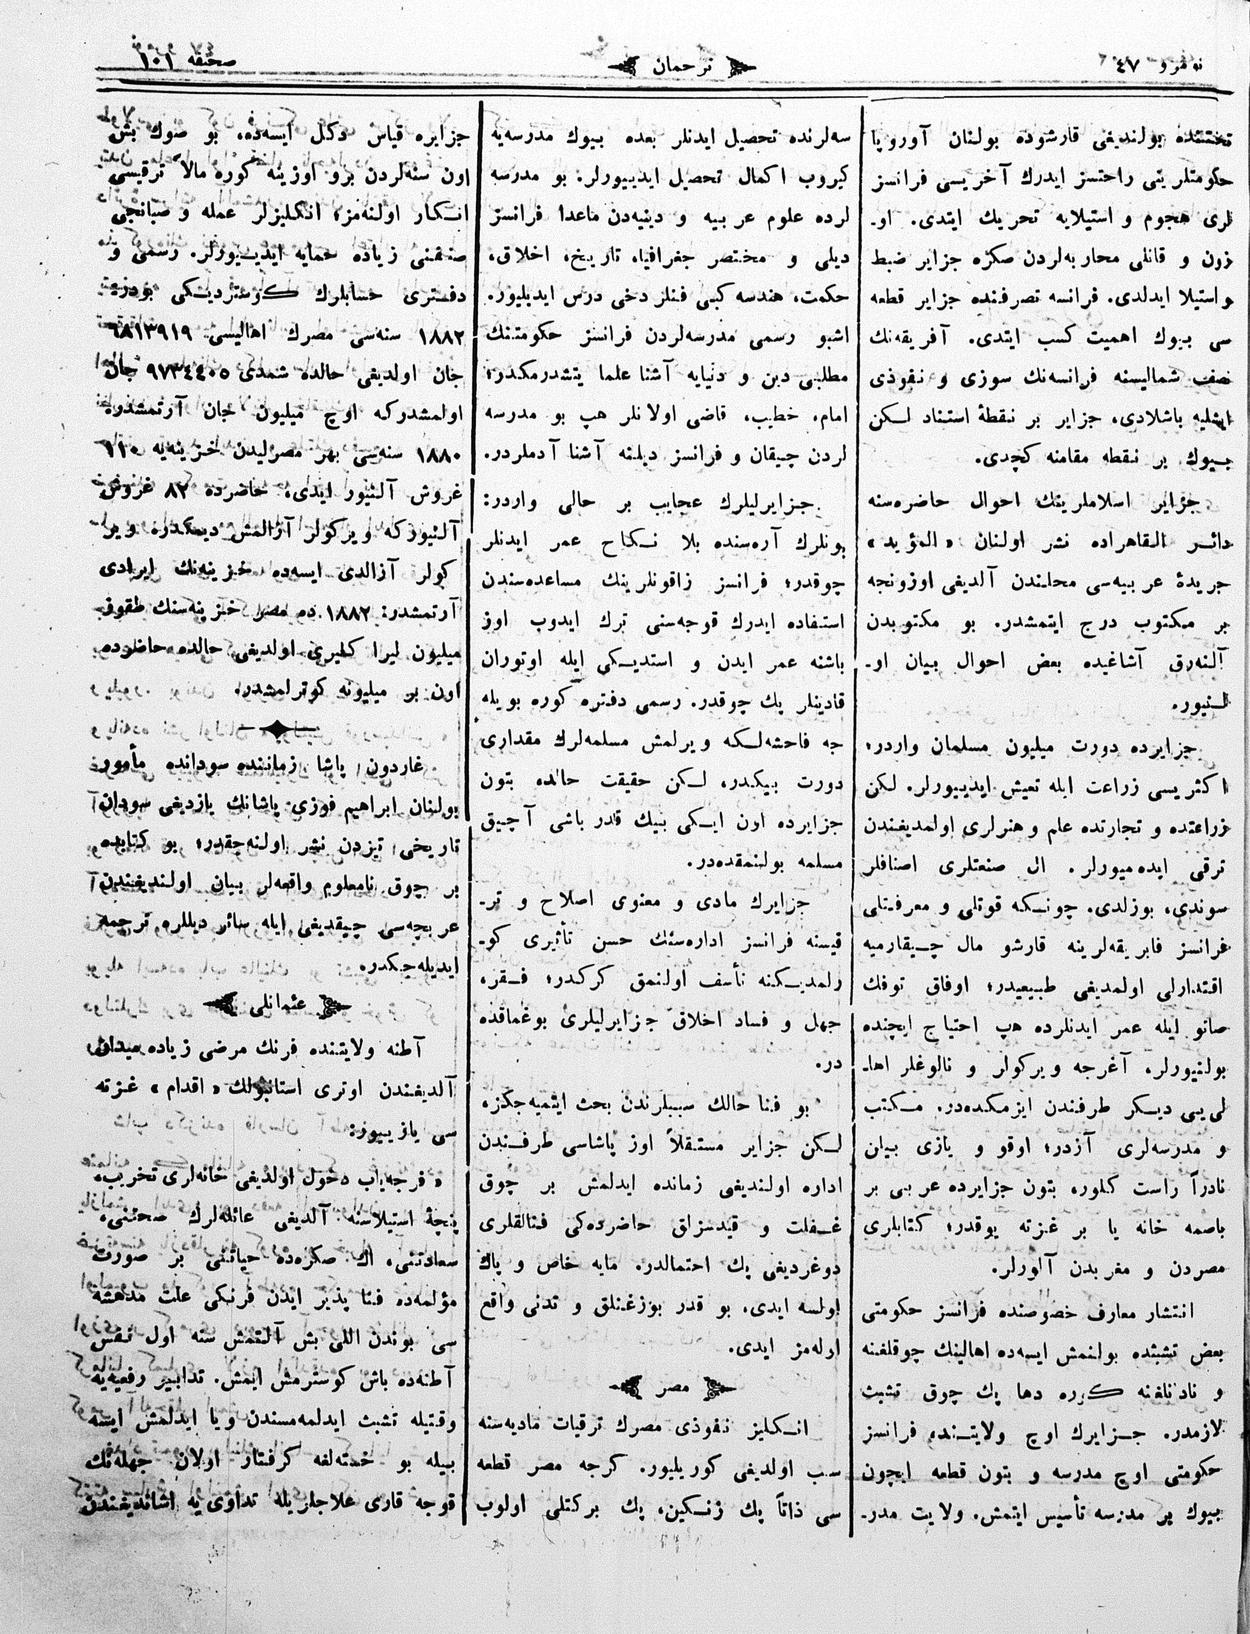 نومرو ٤٧
ترجمان
صحیفه ١٠١
تختنده بولندیغی قارشوده بولنان آوروپا
حکومتلرینی راحتسز ایدرك آخریسی فرانسز
لری هجوم و استیلایه تحریك ایتدی. او-
زون و قانلی محاربه‌لردن صکره جزایر ضبط
و استیلا ایدلدی. فرانسه تصرفنده جزایر قطعه
سی بیوك اهمیت کسب ایتدی. آفریقه‌نك
نصف شمالیسنه فرانسه‌نك سوزی و نفوذی
ایشلیه باشلادی، جزایر بر نقطهٔ استناد لکن
بیوك بر نقطه مقامنه کچدی.
جزایر اسلاملرینك احوال حاضره‌سنه
دائر القاهراده نشر اولنان «المؤید»
جریدهٔ عربیه‌سی محلندن آلدیغی اوزونجه
بر مکتوب درج ایتمشدر. بو مکتوبدن
آلنه‌رق آشاغیده بعض احوال بیان او-
لنیور.
جزایرده دورت میلیون مسلمان واردر؛
اکثریسی زراعت ایله تعیش ایدییورلر. لکن
زراعتده و تجارتده علم و هنرلری اولمدیغندن
ترقی ایده‌میورلر. ال صنعتلری اصنافلر
سوندی، بوزلدی. چونکه قوتلی و معرفتلی
فرانسز فابریقه‌لرینه قارشو مال چیقارمیه
اقتدارلی اولمدیغی طبیعیدر؛ اوفاق توفك
صاتو ایله عمر ایدنلرده هپ احتیاج ایچنده
بولنیورلر، آغرجه ویرکولر و نالوغلر اها-
لی‌یی دیکر طرفندن ایزمکده‌در. مکتب
و مدرسه‌لری آزدر؛ اوقو و یازی بیان
نادراً راست کلور، بتون جزایرده عربی بر
باصمه خانه یا بر غزته یوقدر؛ کتابلری
مصردن و مغربدن آلورلر.
انتشار معارف خصوصنده فرانسز حکومتی
بعض تشبثده بولنمش ایسه‌ده اهالینك چوقلغنه
و نادانلغنه کوره دها پك چوق تشبث
لازمدر. جزایرك اوچ ولایتنده فرانسز
حکومتی اوچ مدرسه و بتون قطعه ایچون
بیوك بر مدرسه تأسیس ایتمش. ولایت مدر-
سه‌لرنده تحصیل ایدنلر بعده بیوك مدرسه‌یه
کیروب اکمال تحصیل ایدییورلر. بو مدرسه
لرده علوم عربیه و دینیه‌دن ماعدا فرانسز
دیلی و مختصر جغرافیا، تاریخ، اخلاق،
حکمت، هندسه کبی فنلر دخی درس ایدیلیور.
اشبو رسمی مدرسه‌لردن فرانسز حکومتنك
مطلبی دین و دنیایه آشنا علما یتشدرمکدر؛
امام، خطیب، قاضی اولانلر هپ بو مدرسه
لردن چیقان و فرانسز دیلنه آشنا آدملردر.
جزایرلیلرك عجایب بر حالی واردر:
بونلرك آره‌سنده بلا نکاح عمر ایدنلر
چوقدر؛ فرانسز زاقونلرینك مساعده‌سندن
استفاده ایدرك قوجه‌سنی ترك ایدوب اوز
باشنه عمر ایدن و استدیکی ایله اوتوران
قادینلر پك چوقدر. رسمی دفتره کوره بویله
جه فاحشه‌لکه ویرلمش مسلمه‌لرك مقداری
دورت بیکدر، لکن حقیقت حالده بتون
جزایرده اون ایکی بیك قدر باشی آچیق
مسلمه بولنمقده‌در.
جزایرك مادی و معنوی اصلاح و تر-
قیسنه فرانسز اداره‌سنك حسن تأثیری کو-
رلمدیکنه تأسف اولنمق کرکدر؛ فقره،
جهل و فساد اخلاق جزایرلیلری بوغمقده
در.
بو فنا حالك سببلرندن بحث ایتمیه‌جکز،
لکن جزایر مستقلاً اوز پاشاسی طرفندن
اداره اولندیغی زمانده ایدلمش بر چوق
غفلت و قیدسزلق حاضرده‌کی فنالقلری
دوغردیغی پك احتمالدر. مایه خاص و پاك
اولسه ایدی، بو قدر بوزغنلق و تدنی واقع
اوله‌مز ایدی.
مصر
انکلیز نفوذی مصرك ترقیات مادیه‌سنه
سبب اولدیغی کوریلیور. کرجه مصر قطعه
سی ذاتاً پك زنکین، پك برکتلی اولوب
جزایره قیاس دکل ایسه‌ده، بو صوك بش
اون سنه‌لردن برو اوزینه کوره مالاً ترقیسی
انکار اولنه‌مز؛ انکلیزلر عمله و صبانجی
صنفنی زیاده حمایه ایدییورلر. رسمی و
دفتری حسابلرك کوستردیکی بودر:
١٨٨٢ سنه‌سی مصرك اهالیسی ٦٨١٣٩١٩
جان اولدیغی حالده شمدی ٩٧٣٤٤٠٥ جان
اولمشدرکه اوچ میلیون جان آرتمشدر.
١٨٨٠ سنه‌سی بهر مصرلیدن خزینه‌یه ١١٠
غروش آلنیور ایدی، حاضرده ٨٢ غروش
آلنیورکه ویرکولر آزالمش دیمکدر. ویر
کولر آزالدی ایسه‌ده خزینه‌نك ایرادی
آرتمشدر: ١٨٨٢ ده مصر خزینه‌سنك طقوز
میلیون لیرا کلیری اولدیغی حالده حاضرده
اون بر میلیونه کوترلمشدر.
غاردون پاشا زماننده سودانده مأمور
بولنان ابراهیم فوزی پاشانك یازدیغی سودان
تاریخی تیزدن نشر اولنه‌جقدر؛ بو کتابده
بر چوق نامعلوم واقعه‌لر بیان اولندیغندن
عربچه‌سی چیقدیغی ایله سائر دیللره ترجمه
ایدیله‌جکدر.
عثمانلی
آطنه ولایتنده فرنك مرضی زیاده میدان
آلدیغندن اوتری استانبولك «اقدام» غزته
سی یازییور:
« فرجه‌یاب دخول اولدیغی خانه‌لری تخریب،
پنجهٔ استیلاسنه آلدیغی عائله‌لرك صحتنی،
سعادتنی، اك صکره‌ده حیاتنی بر صورت
مؤلمه‌ده فنا پذیر ایدن فرنکی علت مدهشه
سی بوندن اللی بش آلتمش سنه اول نفس
آطنه‌ده باش کوسترمش ایمش. تدابیر رفعیه‌یه
وقتیله تشبث ایدلمه‌مسندن ویا ایدلمش ایسه
بیله بو خسته‌لغه کرفتار اولان جهله‌نك
قوجه قاری علاجلریله تداوی‌یه اشاندیغندن